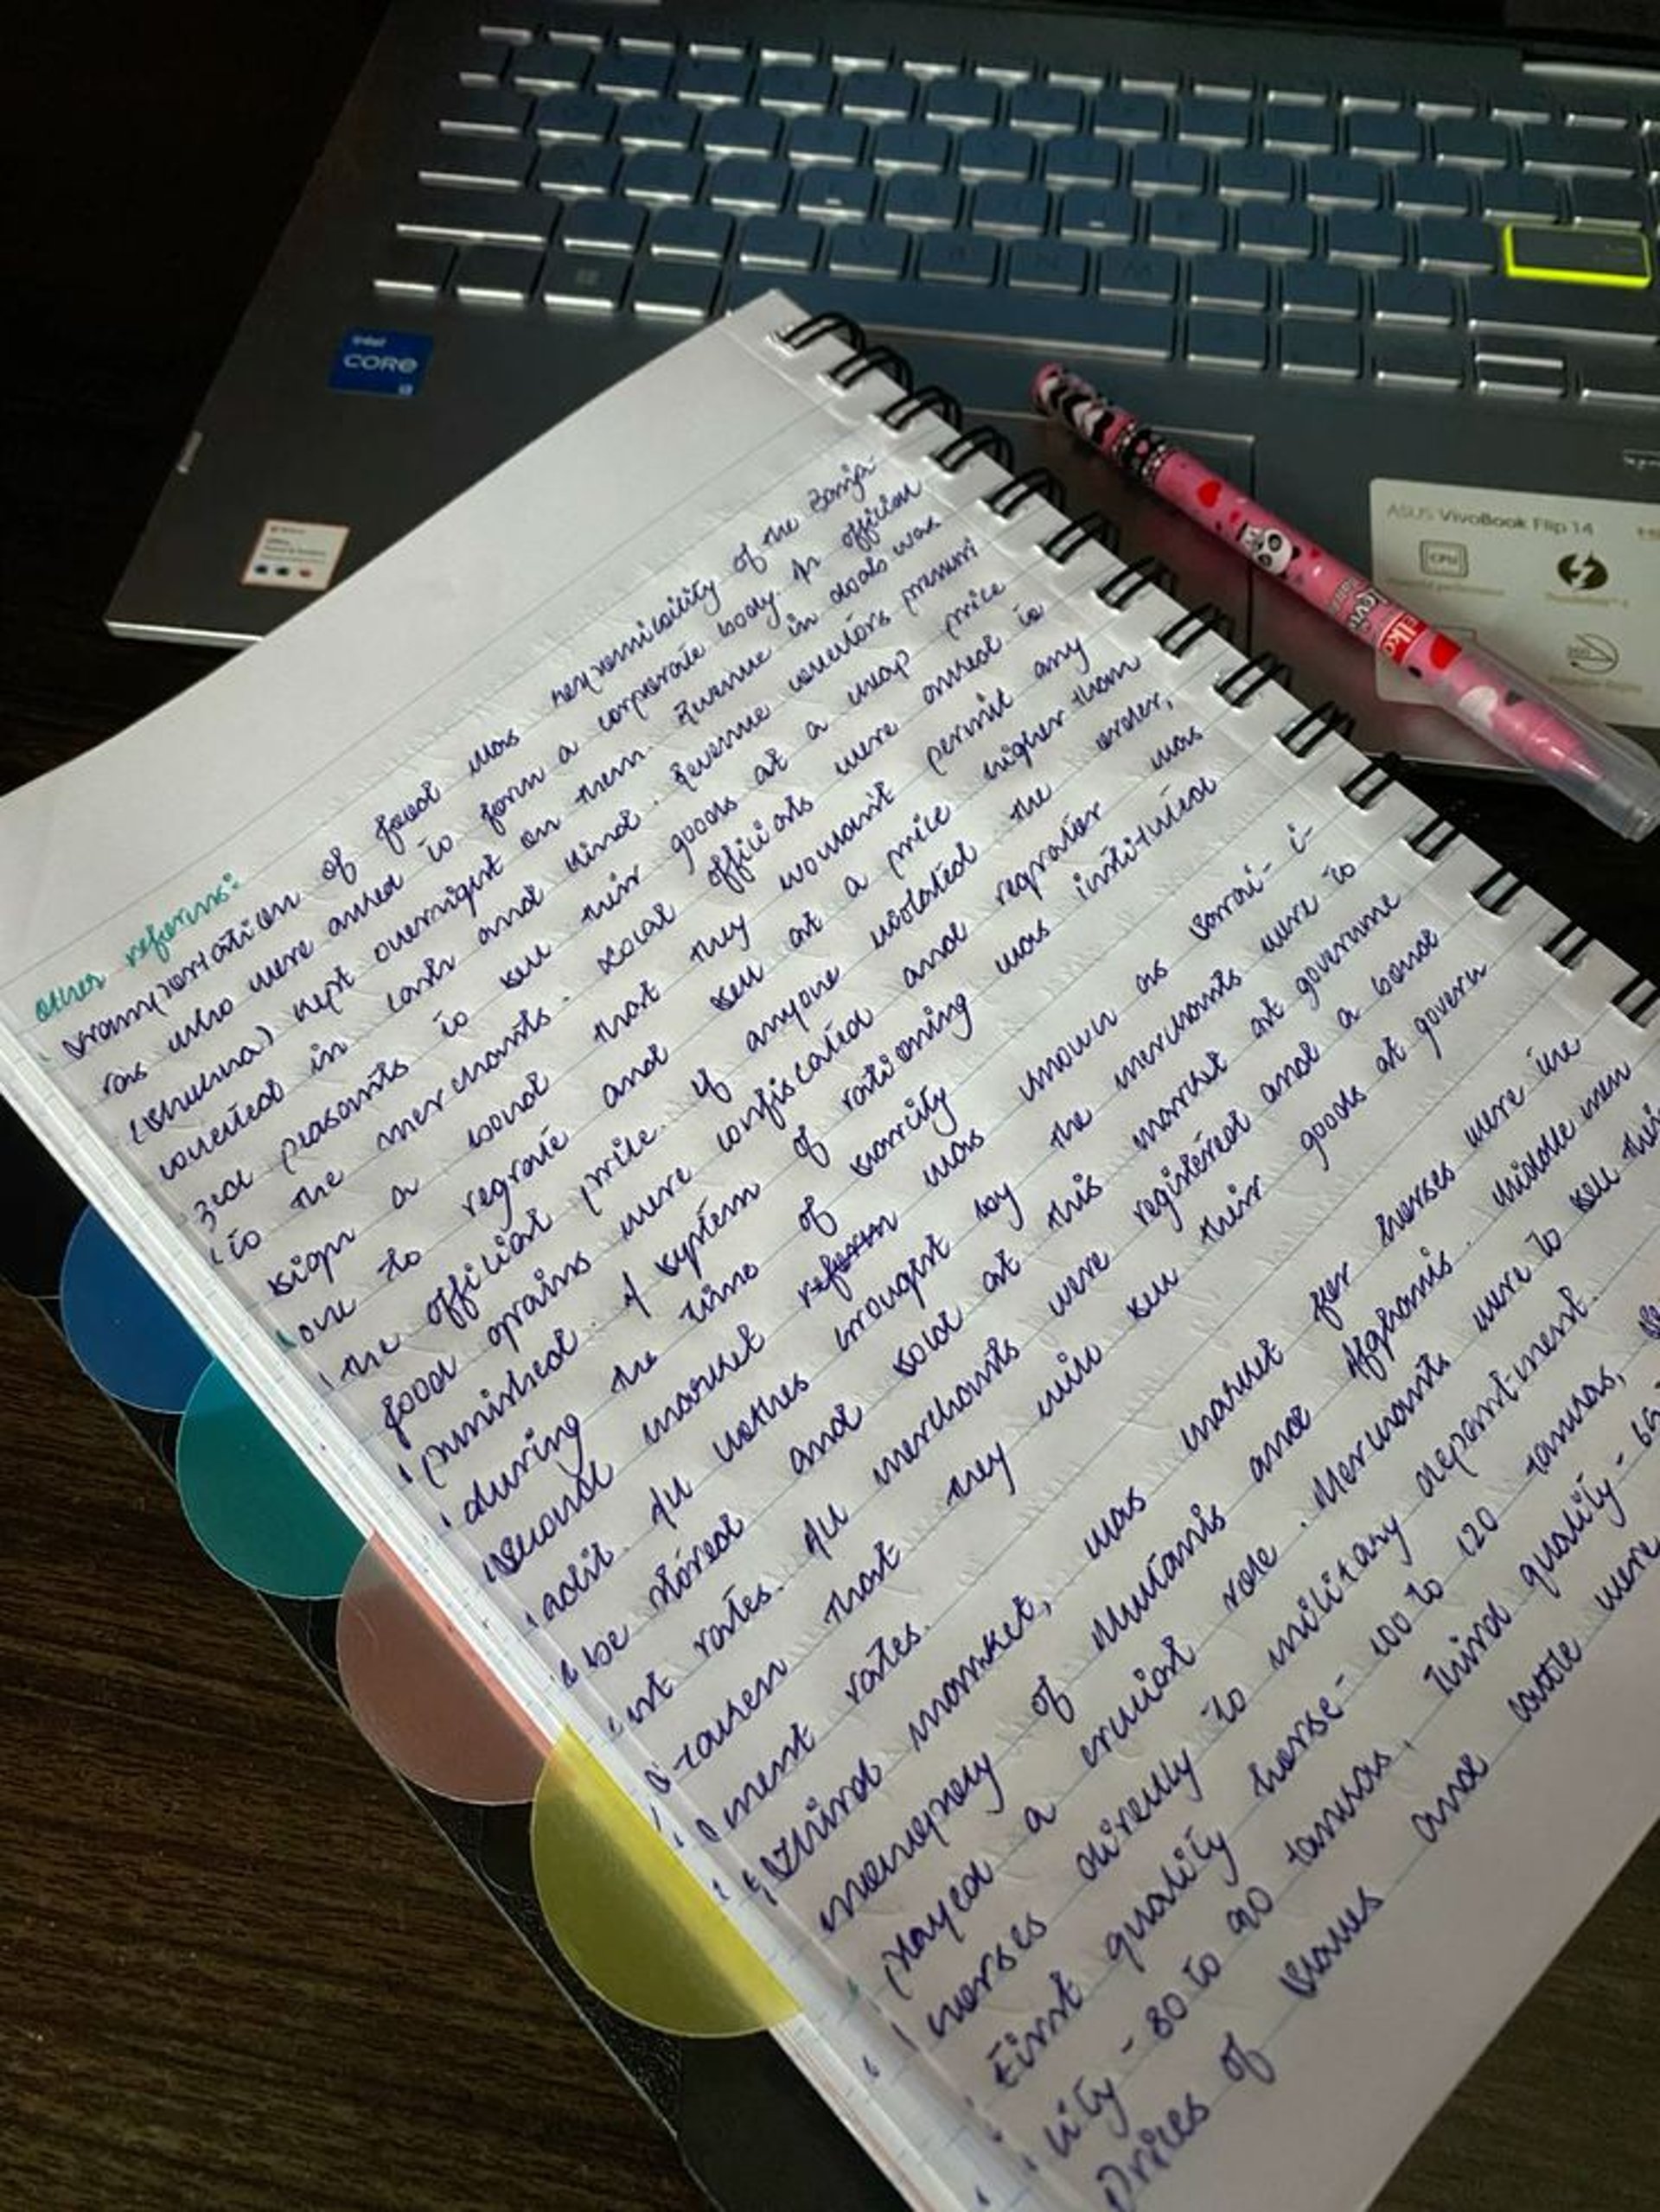 intel
CORE
i3
ASUS VivoBook Flip 14
CPU
elko
other reforms:
Transportation of food was responsibility of the Banja-
ras who were asked to form a corporate body. An official
(shuhna) kept overnight on them. Revenue in doab was
collected in cash and kind. Revenue collectors pressuri
zed peasants to sell their goods at a cheap price
to the merchants. Local officials were asked to
sign a bond that they wouldn't permit any
one to regrate and sell at a price higher than
the official price. If anyone violated the order,
food grains were confiscated and regrator was
punished. A system of rationing was instituted
during the time of scarcity
Second market reform was known as Sarai-i-
adil. All clothes brought by the merchants were to
be stored and sold at this market at governme
nt rates. All merchants were registered and a bond
taken that they will sell their goods at govern
ment rates.
Third market, was market for horses were the
monopoly of Multanis and Afghanis. Middle men
played a crucial role. Merchants were to sell their
horses directly to military department.
First quality horse- 100 to 120 tankas,
lity - 80 to 90 tankas, Third quality -
Prices of slaves and cattle were